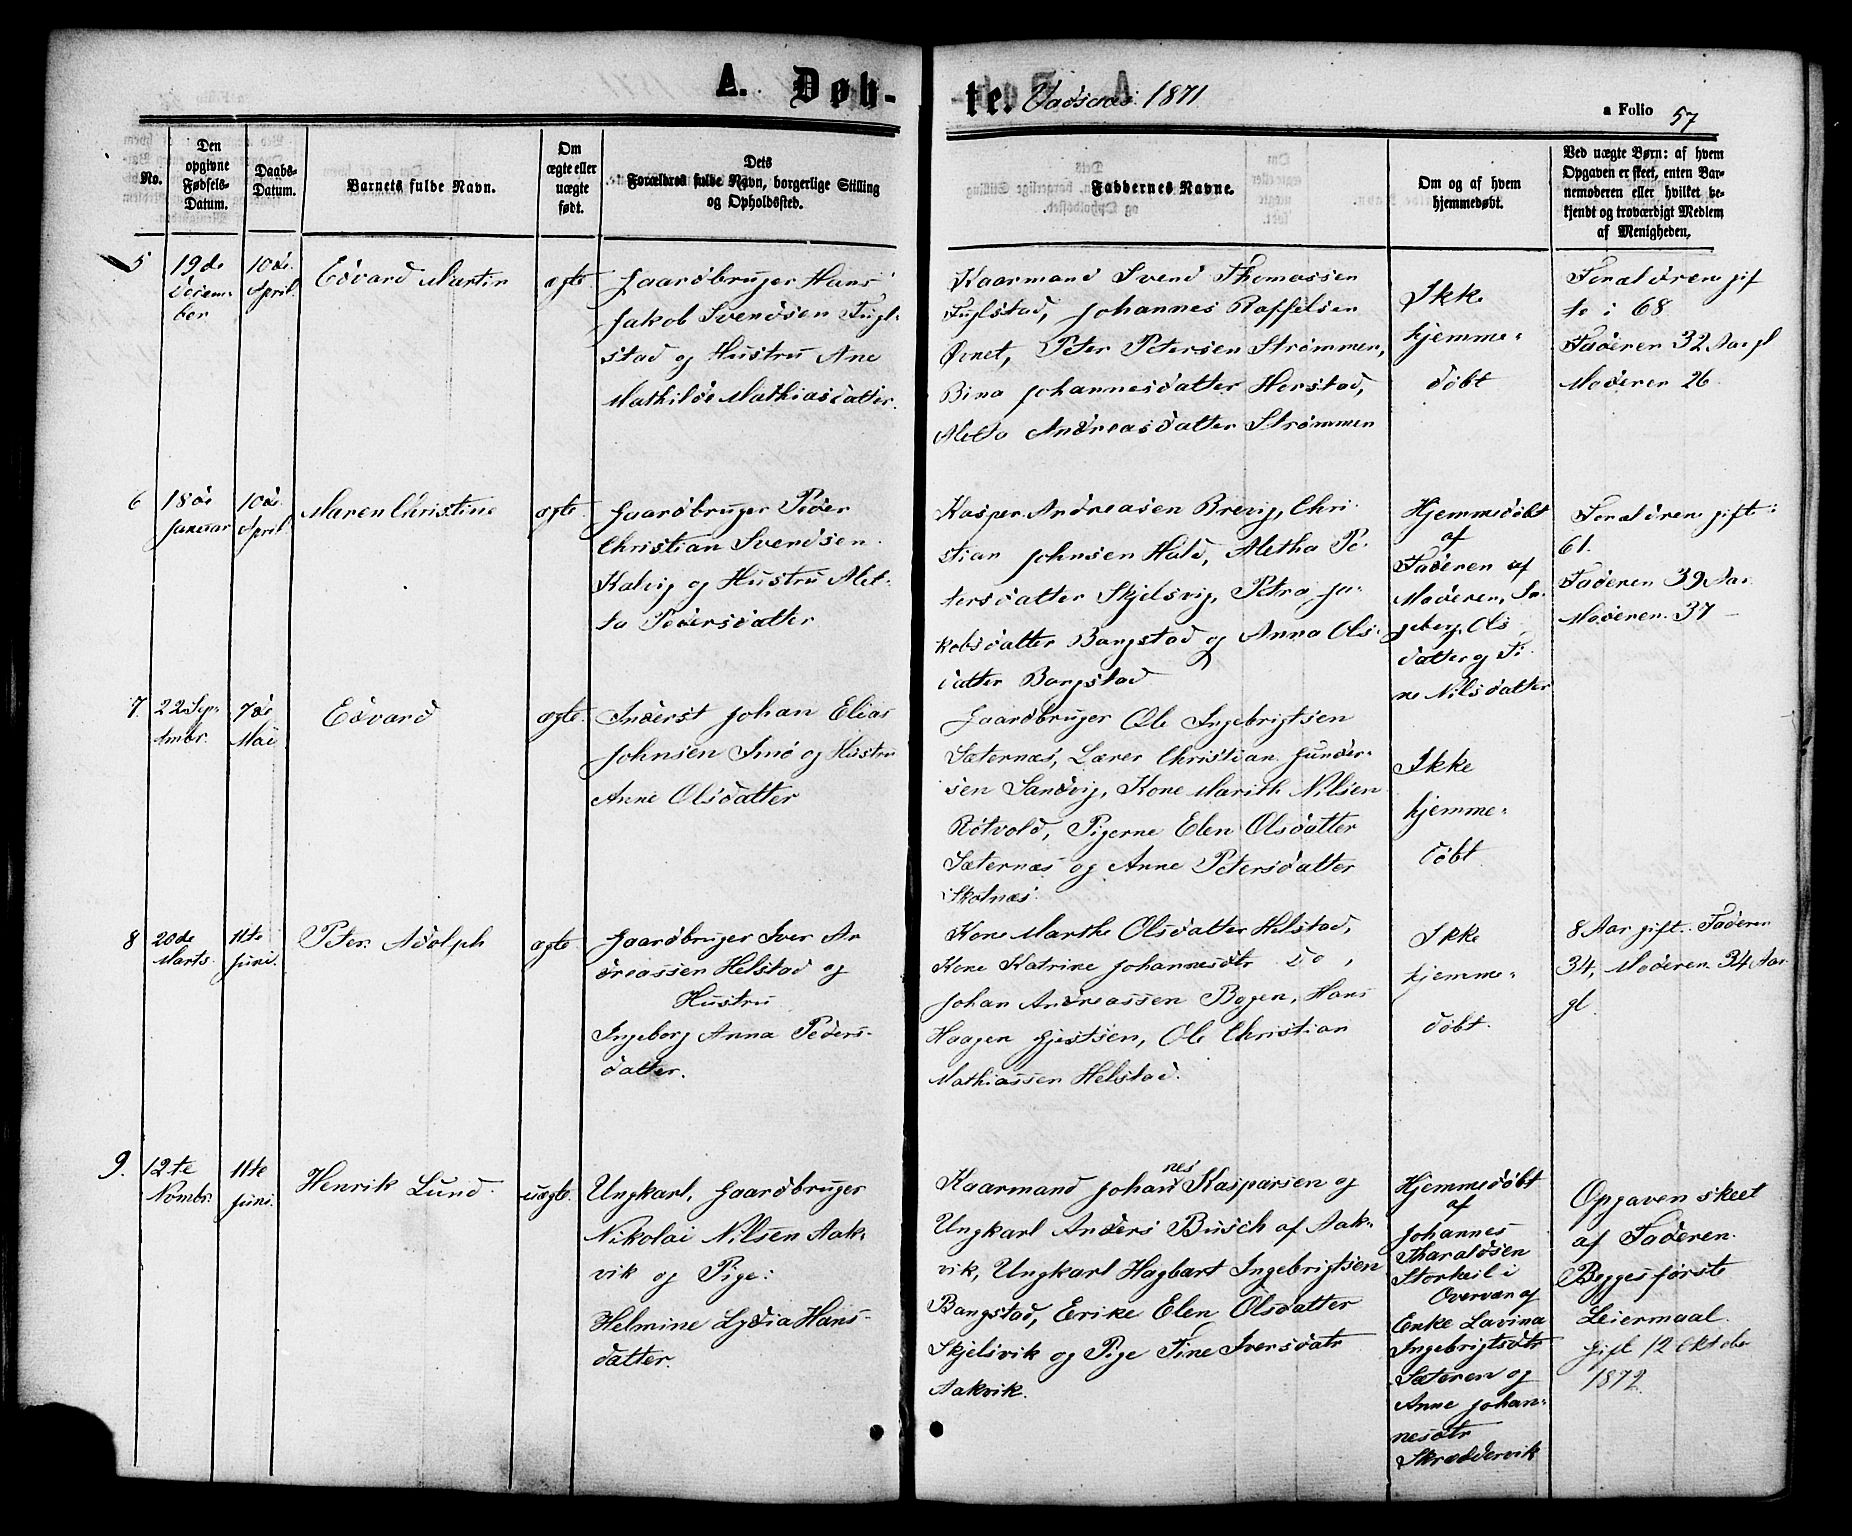 A. Døb-
te. Vadsnæs 1871
a Folio 57
No.
Den
opgivne
Fødsels-
Datum.
Daabs-
Datum.
Barnets fulde Navn.
Om
ægte eller
uægte
født.
Dets
Forældres fulde Navn, borgerlige Stilling
og Opholdssted.
Faddernes Navne.
Om og af hvem
hjemmedøbt.
Ved uægte Børn: af hvem
Opgaven er skeet, enten Bar-
nemoderen eller hvilket be-
kjendt og troværdigt Medlem
af Menigheden.
5
19de
Decem-
ber
10de
April
Edvard Martin
ægte
Gaardbruger Hans
Jakob Svendsen Fugl-
stad og Hustru Ane
Mathilde Mathiasdatter.
Kaarmand Svend Thomassen
Fuglstad, Johannes Raffelsen
Ørnet, Peter Petersen Strømmen,
Bina Johannesdatter Horstad,
Aletta Andreasdatter Strømmen
Ikke
hjemme-
døbt
Forældrene gif
te i 68
Faderen 32 Aar gl
Moderen 26
6
18de
Januar
10de
April
Maren Christine
ægte.
Gaardbruger Peder
Christian Svendsen
Kalvig og Hustru Alet-
ta Pedersdatter
Kasper Andreasen Brevig, Chri-
stian Johnsen Hald, Aletha Pe-
tersdatter Skjelsvig, Petra Ja-
kobsdatter Bangstad og Anna Ols-
datter Bangstad
Hjemmedøbt
af
Faderen af
Moderen, In-
geberg Ols
datter og Ti-
ne Nilsdatter
Forældrene gift
61.
Faderen 39 Aar
Moderen 37 —
7.
22 Sep-
tmbr.
7de
Mai
Edvard
ægte.
Inderst Johan Elias
Johnsen Imø og Hustru
Anne Olsdatter
Gaardbruger Ole Ingebrigtsen
Sæternæs, Lærer Christian Gunder-
sen Sandvig, Kone Marith Nilsen
Røtvold, Pigerne Elen Olsdatter
Sæternæs og Anne Petersdatter
Skotnæs
Ikke
hjemme-
døbt.
8
20de
Marts.
11te
Juni.
Peter Adolph
ægte
Gaardbruger Iver An
dreassen Helstad og
Hustru
Ingeborg Anna Peders-
datter.
Kone Marthe Olsdatter Helstad,
Kone Katrine Johannesdtr do,
Johan Andreassen Bogen, Hans
Haagen Gjestsen, Ole Christian
Mathiassen Helstad.
Ikke
hjemme-
døbt.
8 Aar gift. Faderen
34, Moderen 34 Aar
gl.
9.
12te
Nombr.
11te
Juni.
Henrik Lund.
uægte.
Ungkarl, Gaardbruger
Nikolai Nilsen Aak-
vik og Pige:
Helmine Lydia Hans-
datter.
Kaarmand Johannes Kasparsen og
Ungkarl Anders Busch af Aak-
vik, Ungkarl Hagbart Ingebrigtsen
Bangstad, Erike Elen Olsdatter
Skjelsvik og Pige Tine Iversdatr
Aakvik.
Hjemmedøbt
af
Johannes
Tharaldsen
Storheil i
Overvær af
Enke Lavina
Ingebrigtsdtr
Sæteren og
Anne Johan-
nesdtr
Skræddervik
Opgaven skeet
af Faderen.
Begges første
Leiermaal.
Gift 12 Oktobr
1872.